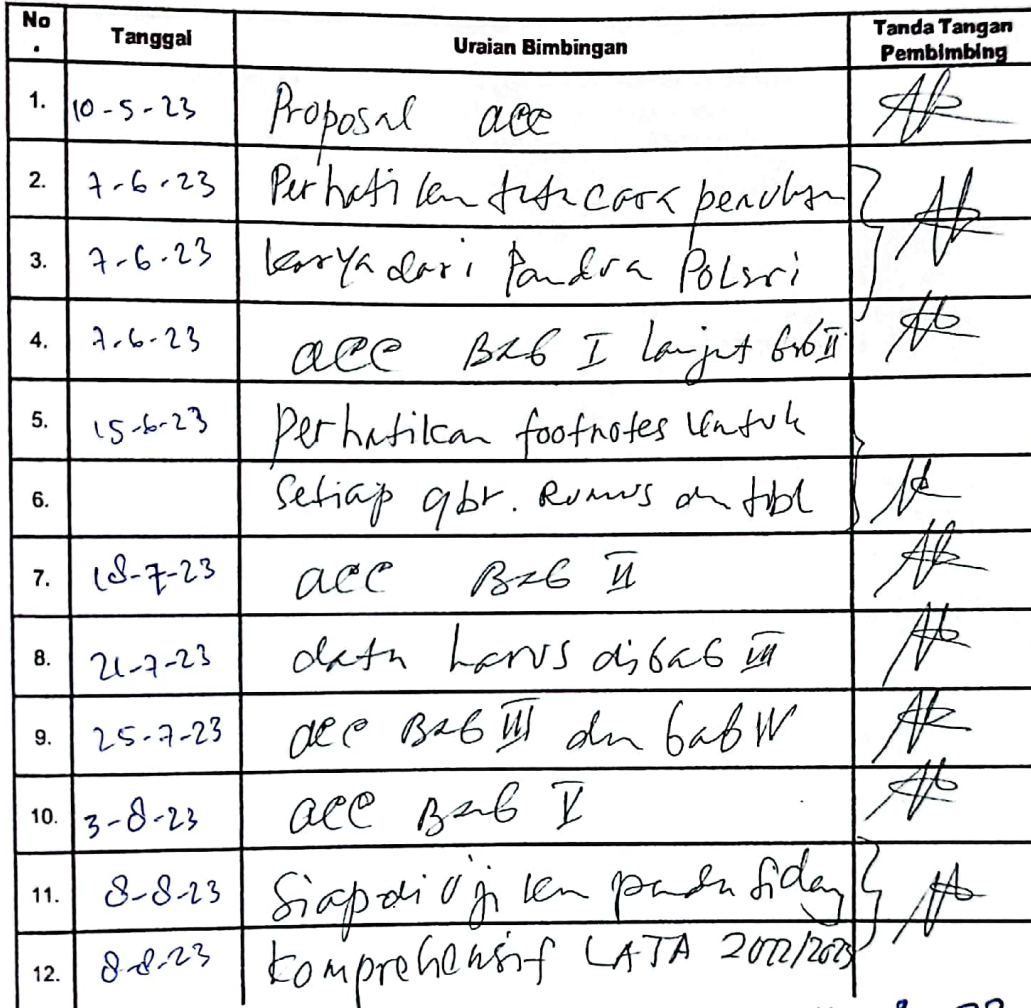 No. Tanggal Uraian Bimbingan Tanda Tangan Pembimbing
1. 10-5-23 Proposal acc
2. 7-6-23 Perhatikan tata cara penulisan
3. 7-6-23 karya dari Pandua Polsri
4. 7-6-23 acc Bab I lanjut bab II
5. 15-6-23 Perhatikan footnotes untuk
6. Setiap gbr. Rumus dn tbl
7. 18-7-23 acc Bab II
8. 21-7-23 data harus di bab III
9. 25-7-23 acc Bab III dn bab IV
10. 3-8-23 acc Bab V
11. 8-8-23 Siap di ujikan pada Sidang
12. 8-8-23 Komprehensif LATA 2022/2023